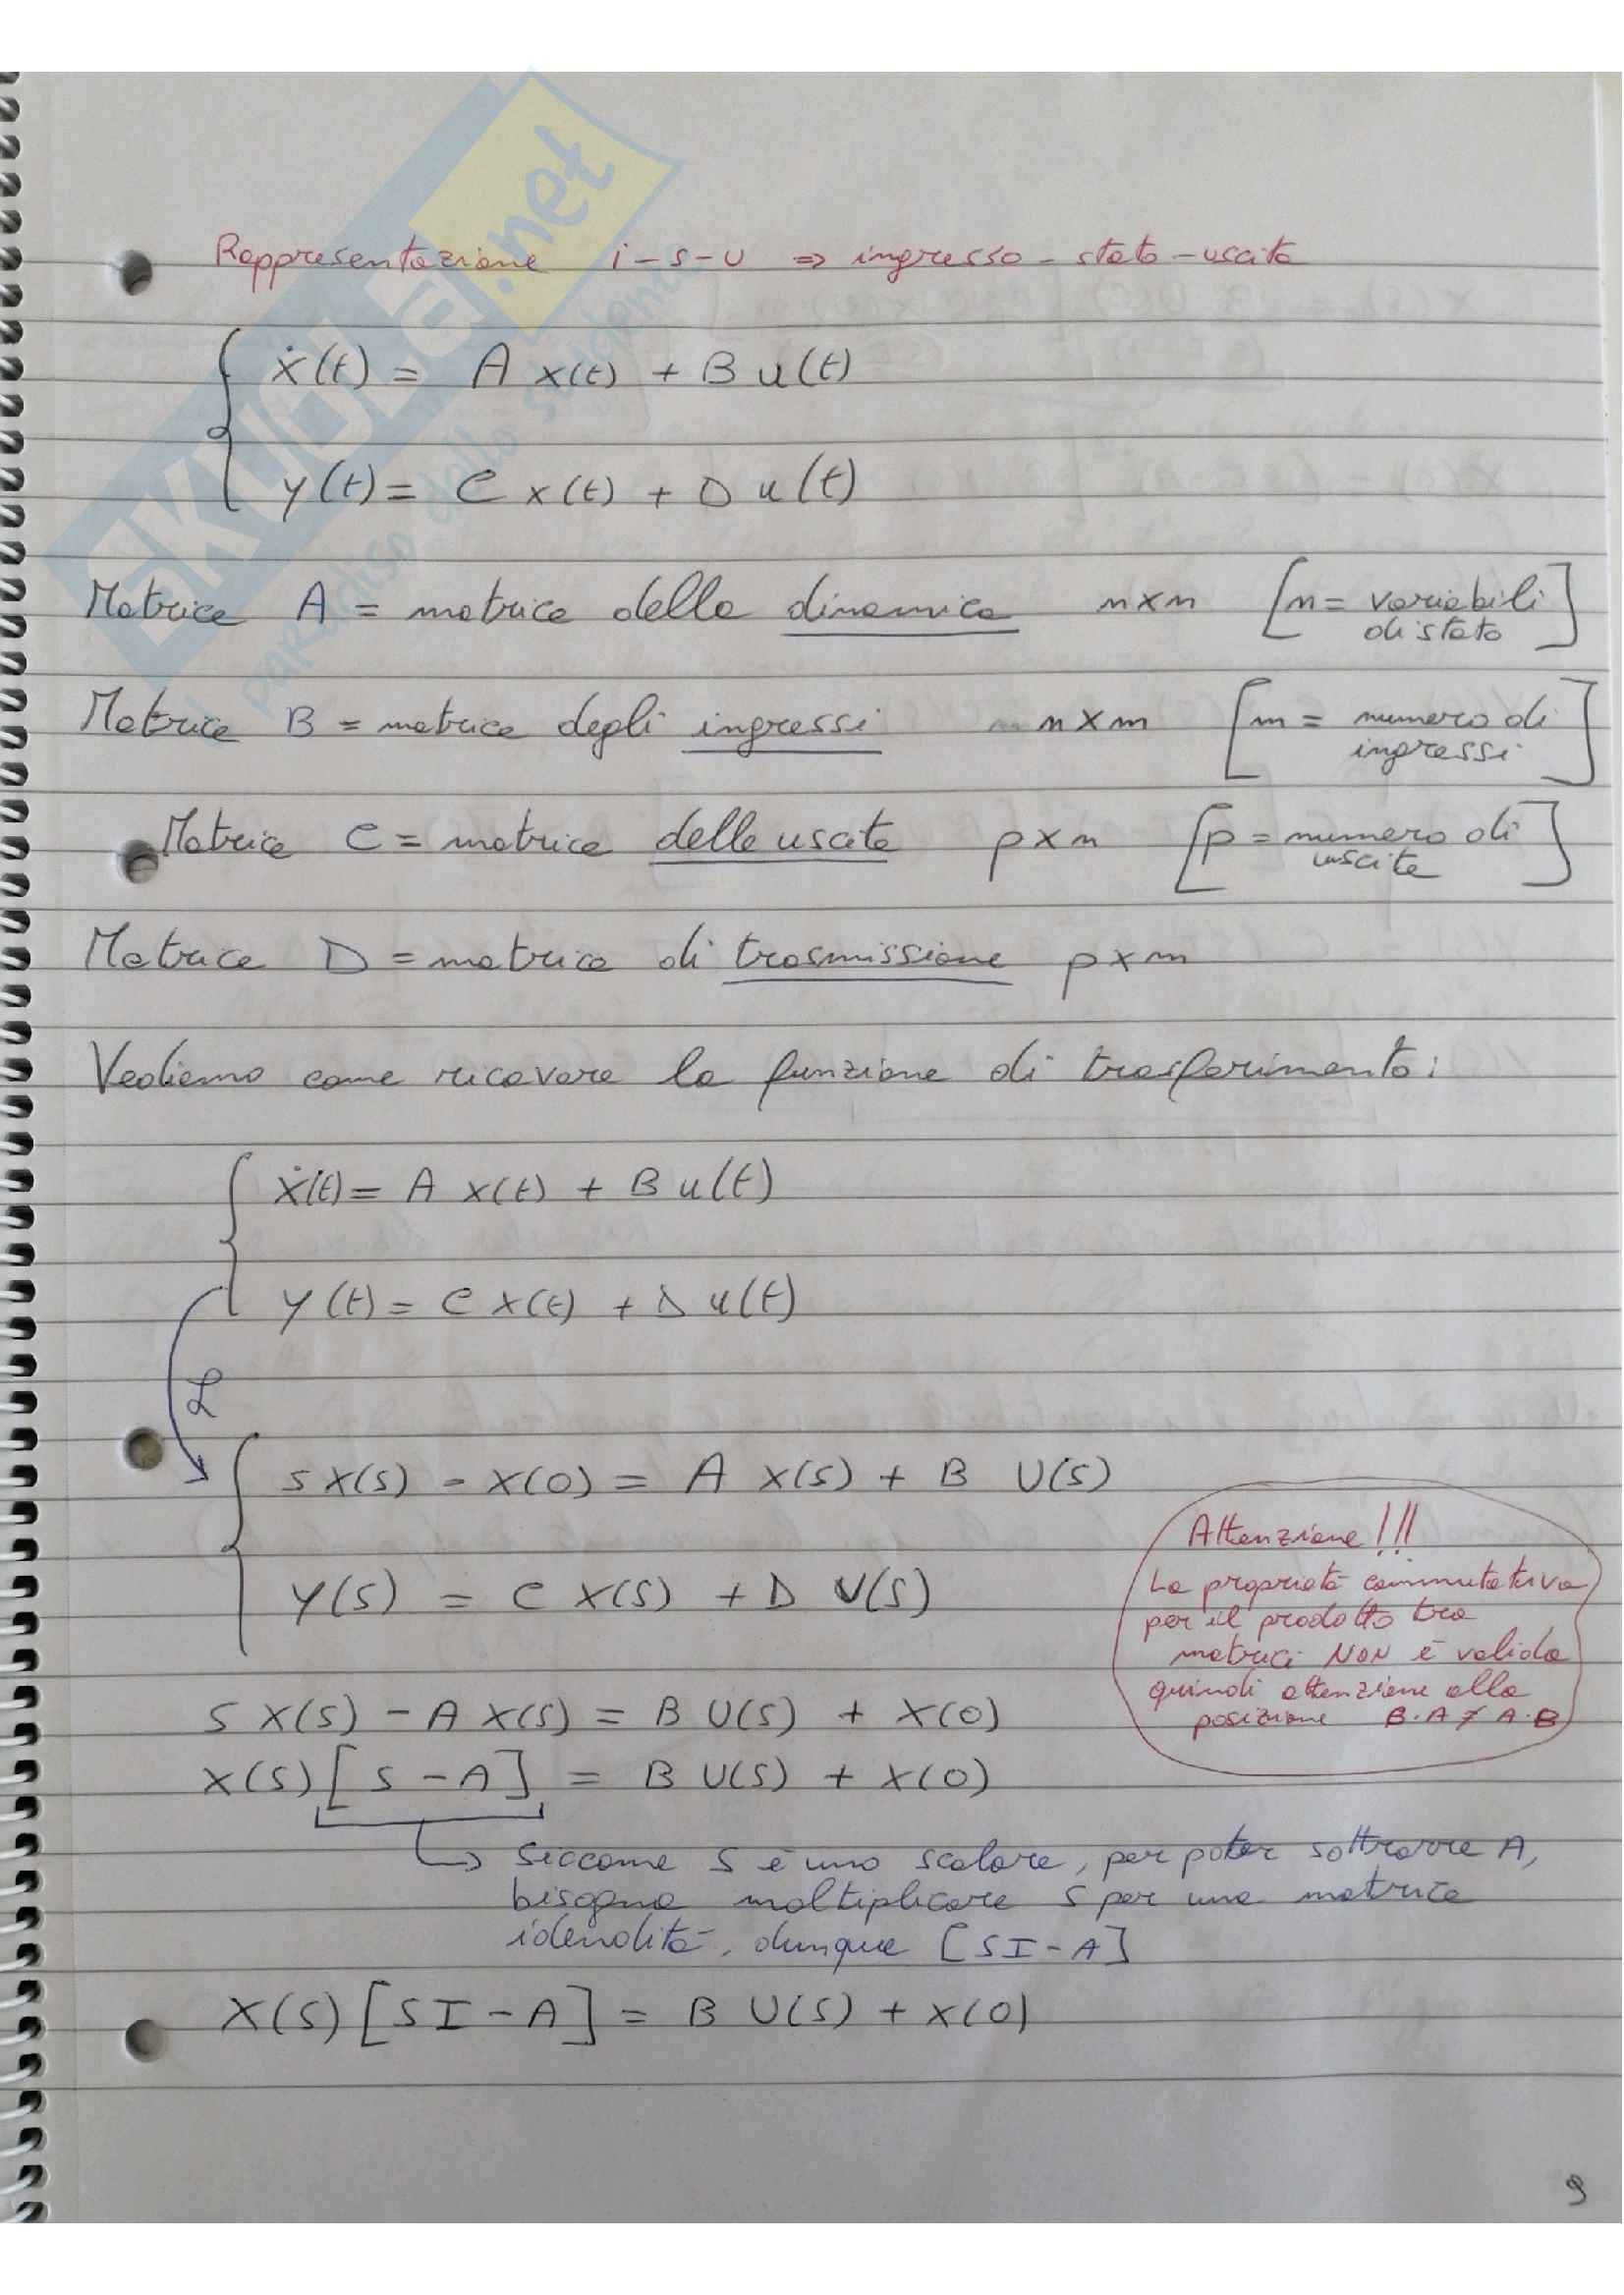 Rappresentazione i-s-u ⇒ ingresso-stato-uscita
ẋ(t) = A x(t) + B u(t)
y(t) = C x(t) + D u(t)
Matrice A = matrice della dinamica n x n [n = variabili di stato]
Matrice B = matrice degli ingressi n x m [m = numero di ingressi]
Matrice C = matrice delle uscite p x n [p = numero di uscite]
Matrice D = matrice di trasmissione p x m
Vediamo come ricavare la funzione di trasferimento:
ẋ(t) = A x(t) + B u(t)
y(t) = C x(t) + D u(t)
ℒ
s X(s) - x(0) = A X(s) + B U(s)
Y(s) = C X(s) + D U(s)
Attenzione!!!
La proprietà commutativa
per il prodotto tra
matrici NON è valida
quindi attenzione alla
posizione B·A ≠ A·B
s X(s) - A X(s) = B U(s) + x(0)
X(s) [s - A] = B U(s) + x(0)
siccome s è uno scalare, per poter sottrarre A,
bisogna moltiplicare s per una matrice
idendità, dunque [sI - A]
X(s) [sI - A] = B U(s) + x(0)
9
SKUOLA.net
il paradiso dello studente